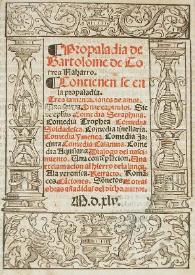 Propaladia de
Bartolome de To
rres Naharro.
Contienen se en
la propaladia.
Tres lamentaciones de amor.
Diez capitulos. Sie
te epistolas Comedia Seraphina.
Comedia Trophea Comedia
Soldadesca. Comedia tinellaria
Comedia Ymenea Comedia Ja
cinta Comedia Calamita. Comedia
Aquilana Dialogo del nasci
miento. Una contemplacion. Una
exclamacion al hierro dela lança
Ala veronica. Retracto. Romances
Canciones. Sonetos
obras añadidas del dicho autor.
M.D.xlv.